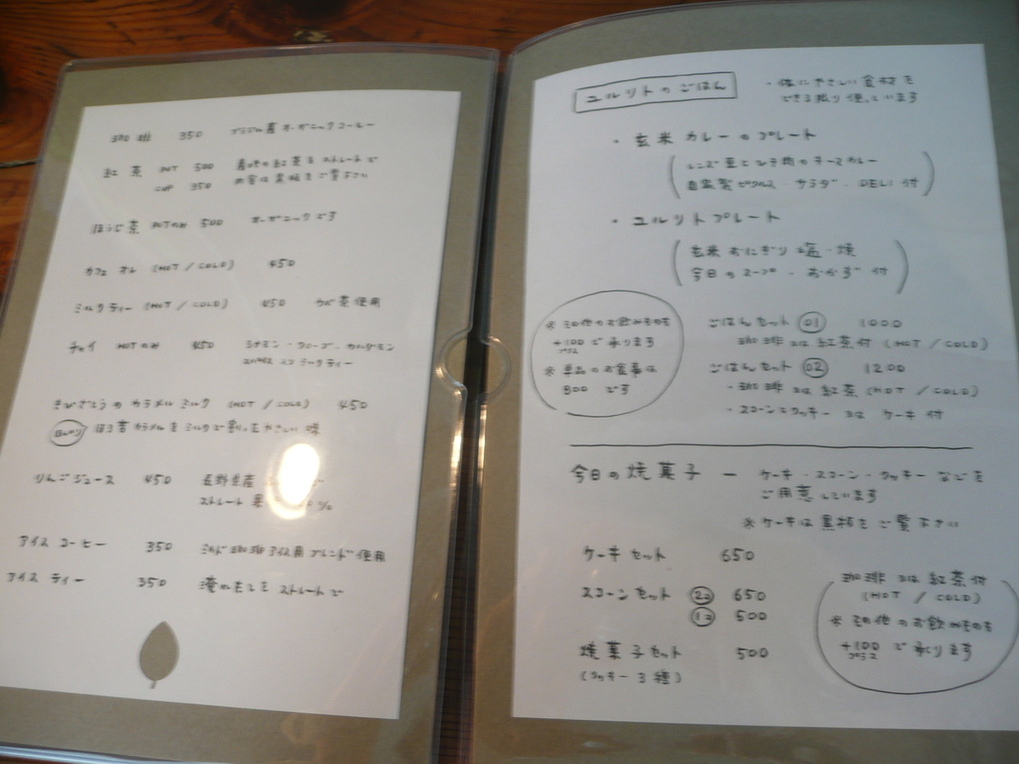 珈琲 350 ブラジル産オーガニックコーヒー
紅茶 POT 500 季節の紅茶をストレートで
CUP 350 内容は黒板をご覧下さい
ほうじ茶 POTのみ 500 オーガニックです
カフェオレ (HOT / COLD) 450
ミルクティー (HOT / COLD) 450 ウバ茶使用
チャイ HOTのみ 450 シナモン・クローブ・カルダモン
ミルクティー
きびざとうのカラメルミルク (HOT / COLD) 450
ほろ苦カラメルをミルクで割ったやさしい味
りんごジュース 450 長野県産
ストレート果 %
アイスコーヒー 350 珈琲アイス用ブレンド使用
アイスティー 350 濃いめをストレートで
ユルリトのごはん
・体にやさしい食材を
できる限り使っています
・玄米カレーのプレート
(レンズ豆とひき肉のキーマカレー
自家製ピクルス・サラダ・DELI付)
・ユルリトプレート
(玄米おにぎり 塩・焼
今日のスープ・おかず付)
※その他のお飲みものを
+100で承ります
プラス
※単品のお食事は
800です
ごはんセット 01 1000
珈琲又は紅茶付 (HOT / COLD)
ごはんセット 02 1200
・珈琲又は紅茶 (HOT / COLD)
・スコーンとクッキー又はケーキ付
今日の焼菓子 ー ケーキ・スコーン・クッキーなどを
ご用意しています
※ケーキは黒板をご覧下さい
ケーキセット 650
スコーンセット 2コ 650
1コ 500
焼菓子セット 500
(クッキー3種)
珈琲又は紅茶付
(HOT / COLD)
※その他のお飲みものを
+100で承ります
プラス